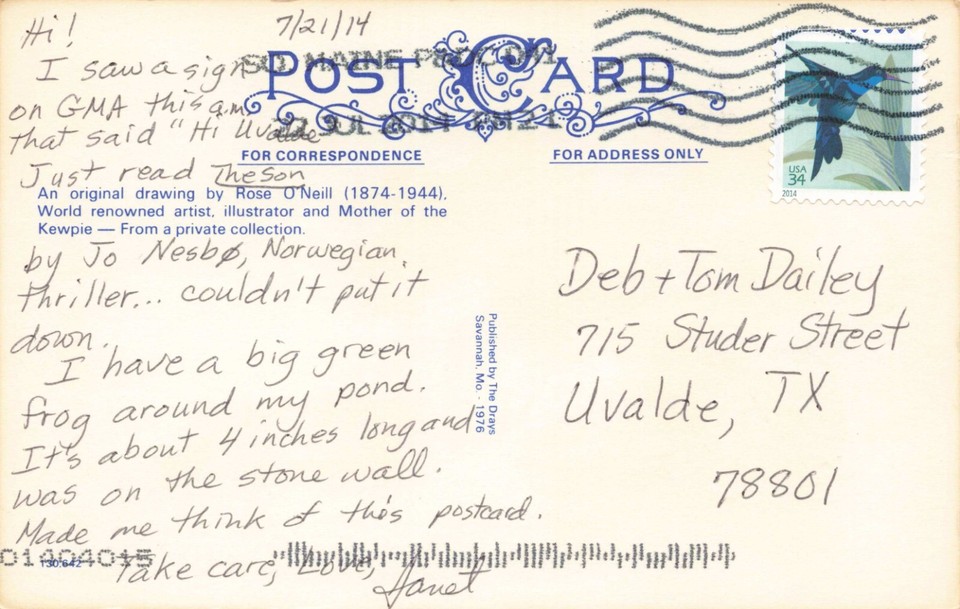 Hi! 7/21/14
I saw a sign
on GMA this am
that said "Hi Uvalde
Just read The Son
by Jo Nesbø, Norwegian
thriller... couldn't put it
down.
I have a big green
frog around my pond.
It's about 4 inches long and
was on the stone wall.
Made me think of this postcard.
Take care, Love,
Janet
POST CARD
SO MAINE P&DC 041
22 JUL 2014 PM 2 L
FOR CORRESPONDENCE
FOR ADDRESS ONLY
An original drawing by Rose O'Neill (1874-1944).
World renowned artist, illustrator and Mother of the
Kewpie — From a private collection.
Published by The Drays
Savannah, Mo. - 1976
USA
34
2014
Deb + Tom Dailey
715 Studer Street
Uvalde, TX
78801
01404015
130,642